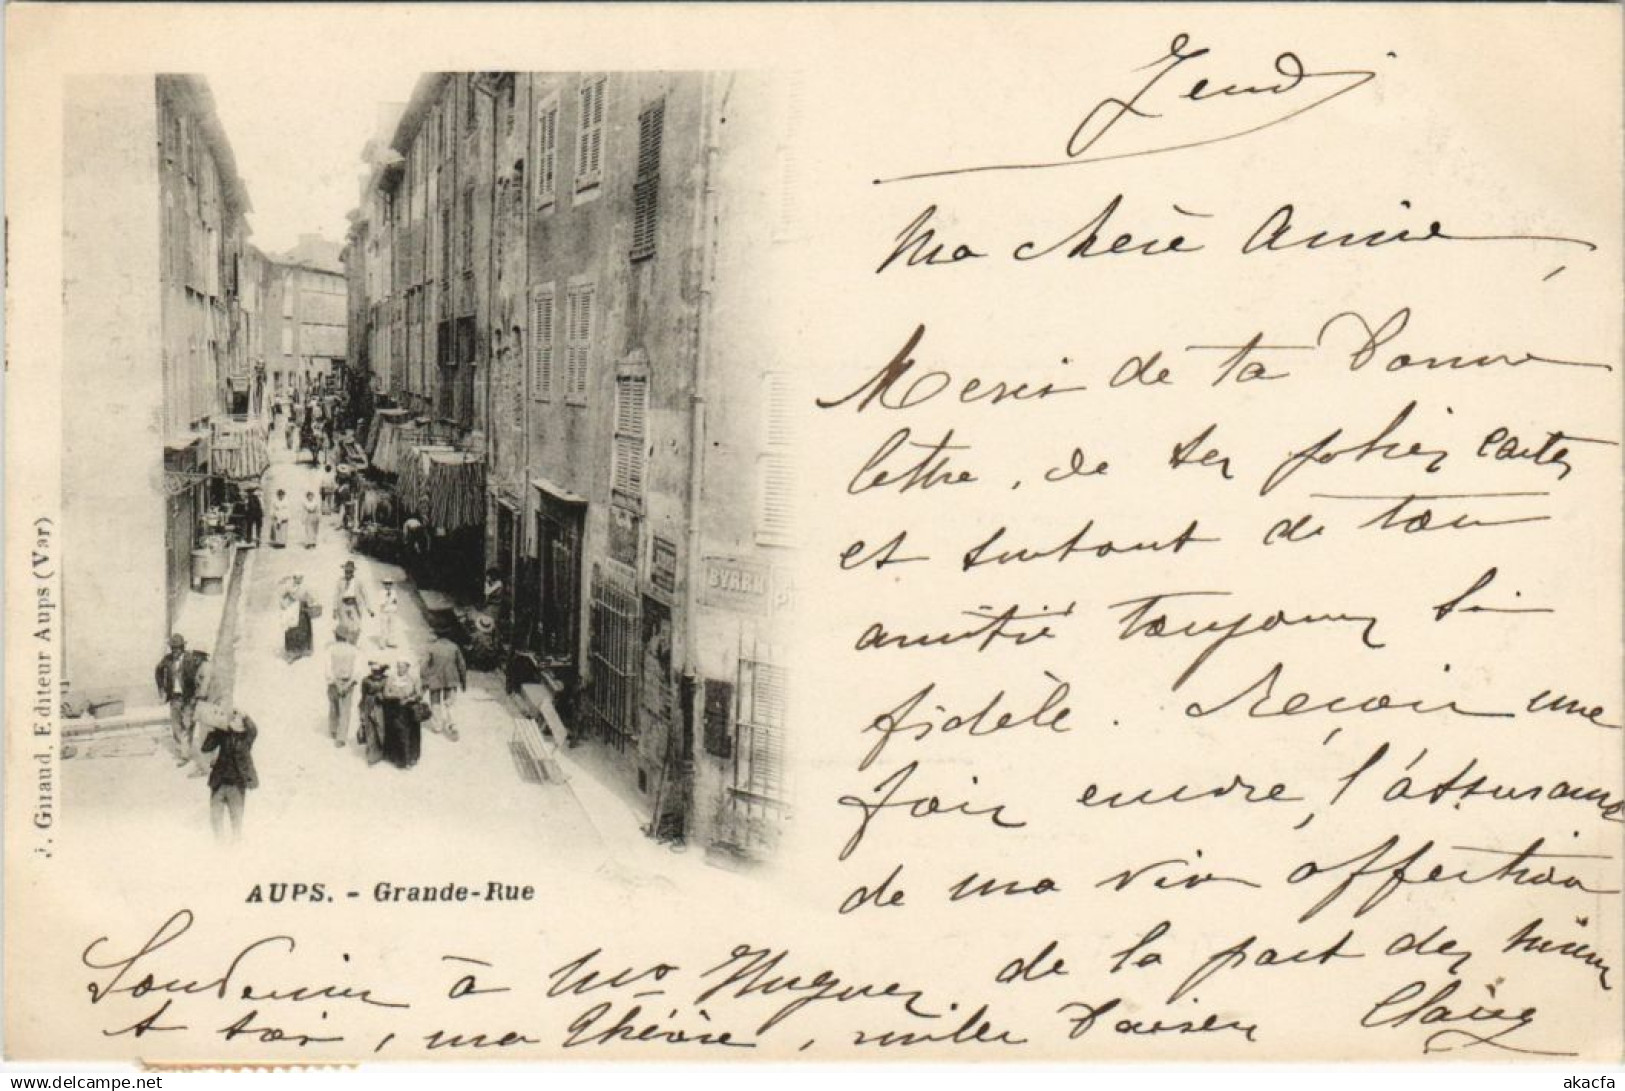 Jeudi
Ma chère Amie,
Merci de ta bonne
lettre, de ses jolies cartes
et surtout de ton
amitié toujours si
fidèle. Reçois une
fois encore, l'assurance
de ma vive affection
Souvenir à Mme Hugues. de la part des miens
à toi, ma chérie, mille baisers Claire
AUPS. - Grande-Rue
J. Giraud, Editeur Aups (Var)
BYRRH
akacfa